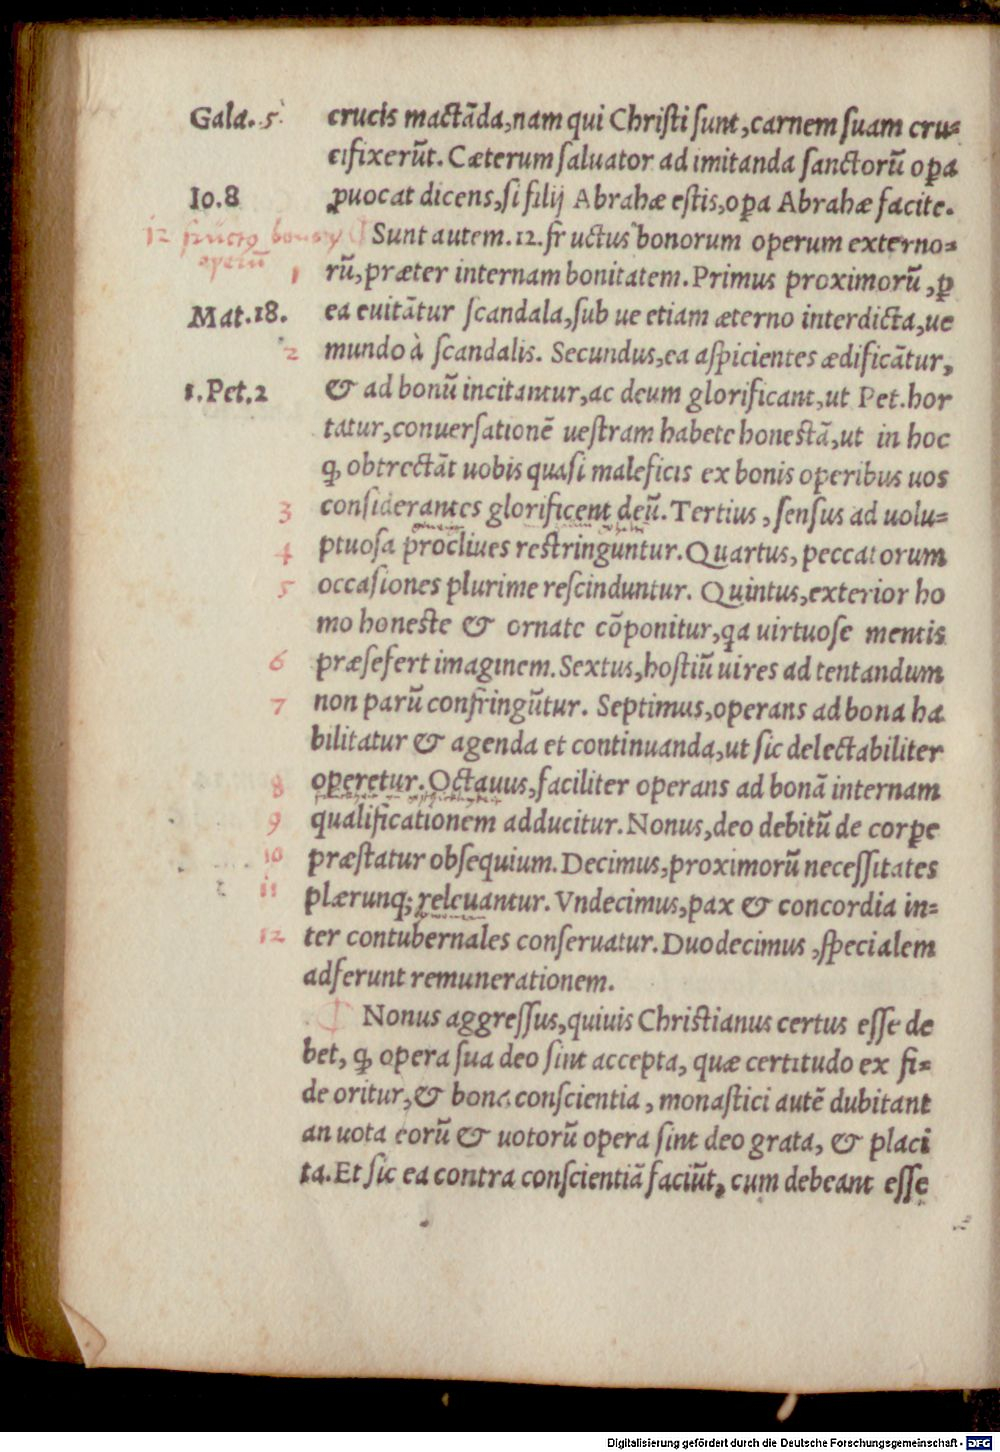 Gala. 5. crucis mactāda, nam qui Christi sunt, carnem suam cru-
cifixerūt. Cæterum saluator ad imitanda sanctorū oꝑa
Io.8 ꝓuocat dicens, si filij Abrahæ estis, oꝑa Abrahæ facite.
12 fructꝰ bonorum Sunt autem .12. fructus bonorum operum externo-
operū
1 rū, præter internam bonitatem. Primus proximorū, ꝑ
Mat.18. ea euitātur scandala, sub ue etiam æterno interdicta, ue
2 mundo à scandalis. Secundus, ea aspicientes ædificātur,
1.Pet.2 & ad bonū incitantur, ac deum glorificant, ut Pet. hor
tatur, conuersationē uestram habete honestā, ut in hoc
ꝙ obtrectāt uobis quasi maleficis ex bonis operibus uos
3 considerantes glorificent deū. Tertius, sensus ad uolu-
4 ptuosa procliues restringuntur. Quartus, peccatorum
5 occasiones plurime rescinduntur. Quintus, exterior ho
mo honeste & ornate cōponitur, qa uirtuose mentis
6 præsefert imaginem. Sextus, hostiū uires ad tentandum
7 non parū confringūtur. Septimus, operans ad bona ha
bilitatur & agenda et continuanda, ut sic delectabiliter
8 operetur. Octauus, faciliter operans ad bonā internam
9 qualificationem adducitur. Nonus, deo debitū de corꝑe
10 præstatur obsequium. Decimus, proximorū necessitates
11 plærunq; releuantur. Vndecimus, pax & concordia in-
12 ter contubernales conseruatur. Duodecimus, specialem
adferunt remunerationem.
Nonus aggressus, quiuis Christianus certus esse de
bet, ꝙ opera sua deo sint accepta, quæ certitudo ex fi-
de oritur, & bona conscientia, monastici autē dubitant
an uota eorū & uotorū opera sint deo grata, & placi
ta. Et sic ea contra conscientiā faciūt, cum debeant esse
Digitalisierung gefördert durch die Deutsche Forschungsgemeinschaft - DFG